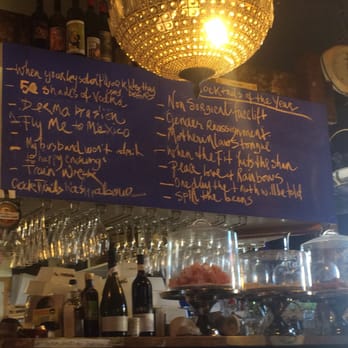 - When your legs don't work like they
used to before
- 50 Shades of Vodka
- Derma brasion
- Fly Me to Mexico
- My husband won't drink
to happy endings
- Train wreck
Cocktails
Cocktails of the Year
- Non Surgical facelift
- Gender Reassignment
- Mother in laws tongue
- When the Fit hits the shan
- Peace love & Rainbows
- One day the truth will be told
- Spill the beans